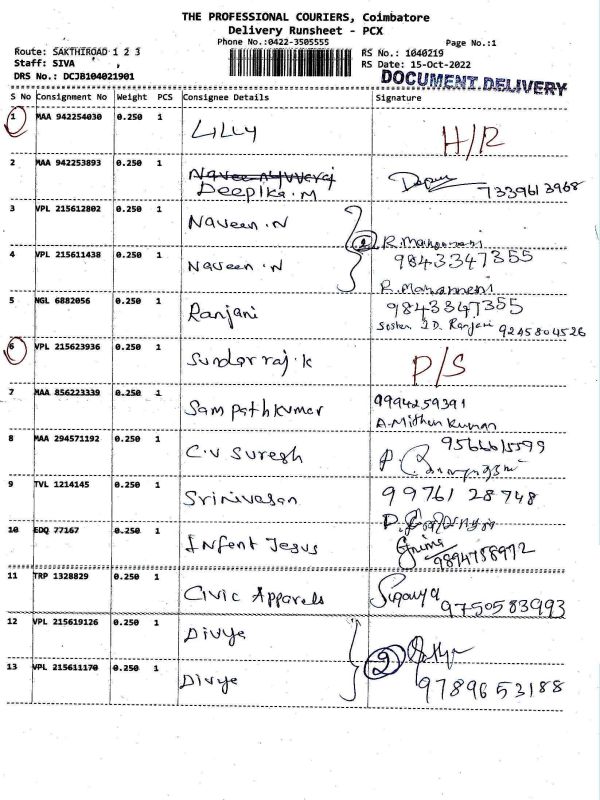 THE PROFESSIONAL COURIERS, Coimbatore
Delivery Runsheet - PCX
Phone No.:0422-3505555
Page No.:1
Route: SAKTHIROAD 1 2 3
RS No.: 1040219
Staff: SIVA
RS Date: 15-Oct-2022
DRS No.: DCJB104021901
DOCUMENT DELIVERY
S No Consignment No Weight PCS Consignee Details Signature
1 MAA 942254030 0.250 1 Lilly H/R
2 MAA 942253893 0.250 1
Deepika.M 7339613968
3 VPL 215612802 0.250 1 Naveen.N
2 9843347355
4 VPL 215611438 0.250 1 Naveen.N
5 NGL 6882056 0.250 1 Ranjani 9843347355
I.D. Ranjani 9245804526
6 VPL 215623936 0.250 1 Sundar raj.k P/S
7 MAA 856223339 0.250 1 Sampathkumar 9994259391
A.Mithun Kumar
8 MAA 294571192 0.250 1 C.V Suresh 9566615599
9 TVL 1214145 0.250 1 Srinivasan 99761 28748
10 EDQ 77167 0.250 1 Infent Jesus
9894788972
11 TRP 1328829 0.250 1 Civic Apparels Suganya 9750583993
12 VPL 215619126 0.250 1 Divya
2
13 VPL 215611170 0.250 1 Divya 9789653188